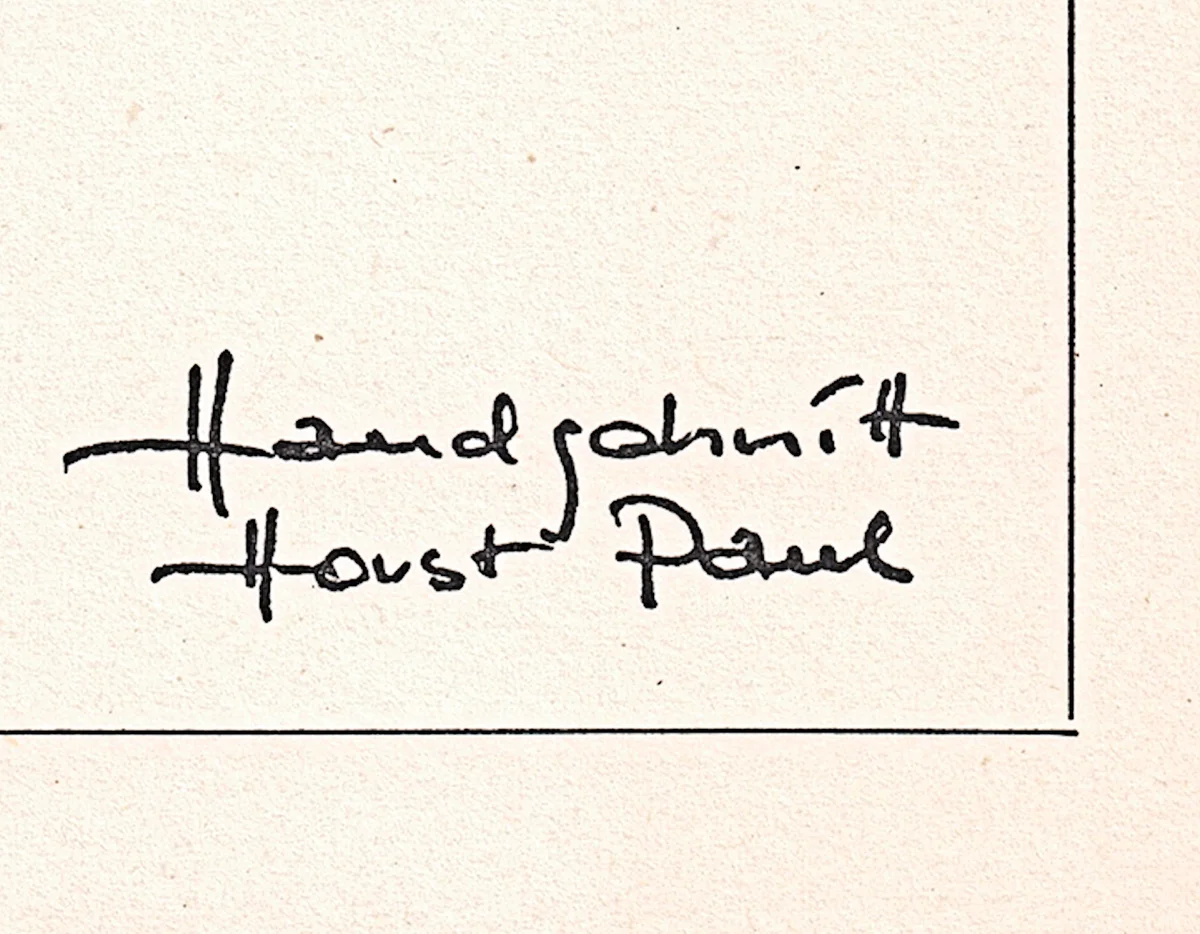 Handschnitt
Horst Paul